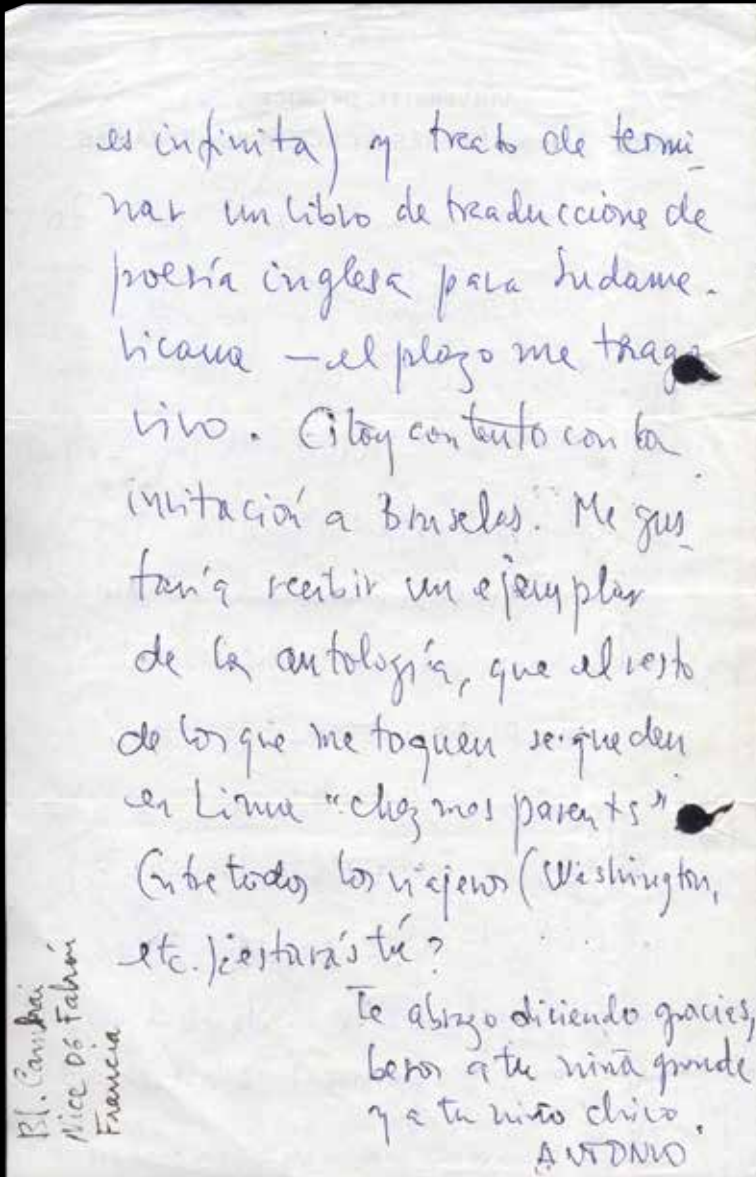 es infinita) y trato de termi-
nar un libro de traduccione de
poesía inglesa para Sudame-
ricana — el plazo me traga
vivo. Estoy contento con la
invitación a Bruselas. Me gus-
taría recibir un ejemplar
de la antología, que el resto
de los que me toquen se queden
en Lima "chez mes parents"
Entre todos los viajeros (Washington,
etc.) ¿estarás tú?
Te abrazo diciendo gracias,
besos a tu niña grande
y a tu niño chico.
ANTONIO
Bl. Cambrai
Nice 06 Fabron
Francia